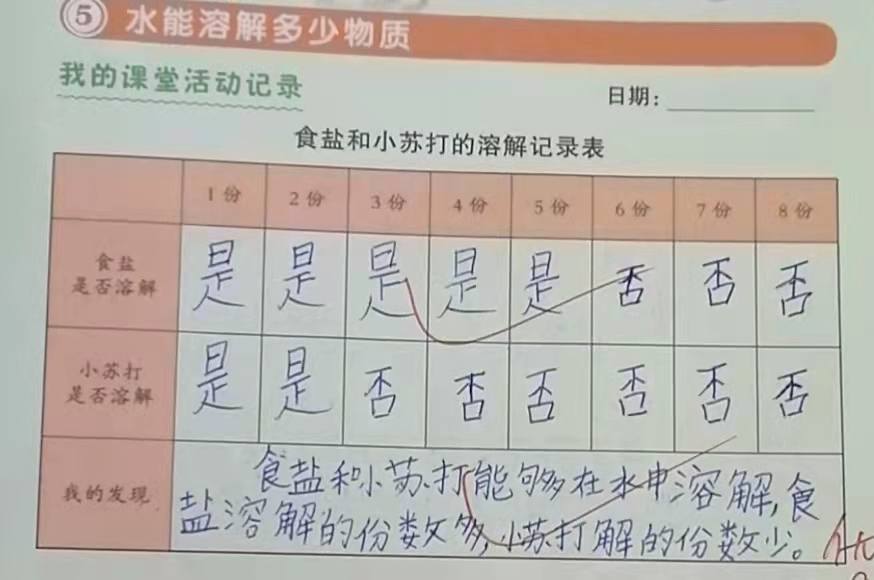 5 水能溶解多少物质
我的课堂活动记录
日期：
食盐和小苏打的溶解记录表
1份 2份 3份 4份 5份 6份 7份 8份
食盐
是否溶解 是 是 是 是 是 否 否 否
小苏打
是否溶解 是 是 否 否 否 否 否 否
我的发现
食盐和小苏打能够在水中溶解,食
盐溶解的份数多,小苏打解的份数少。
优